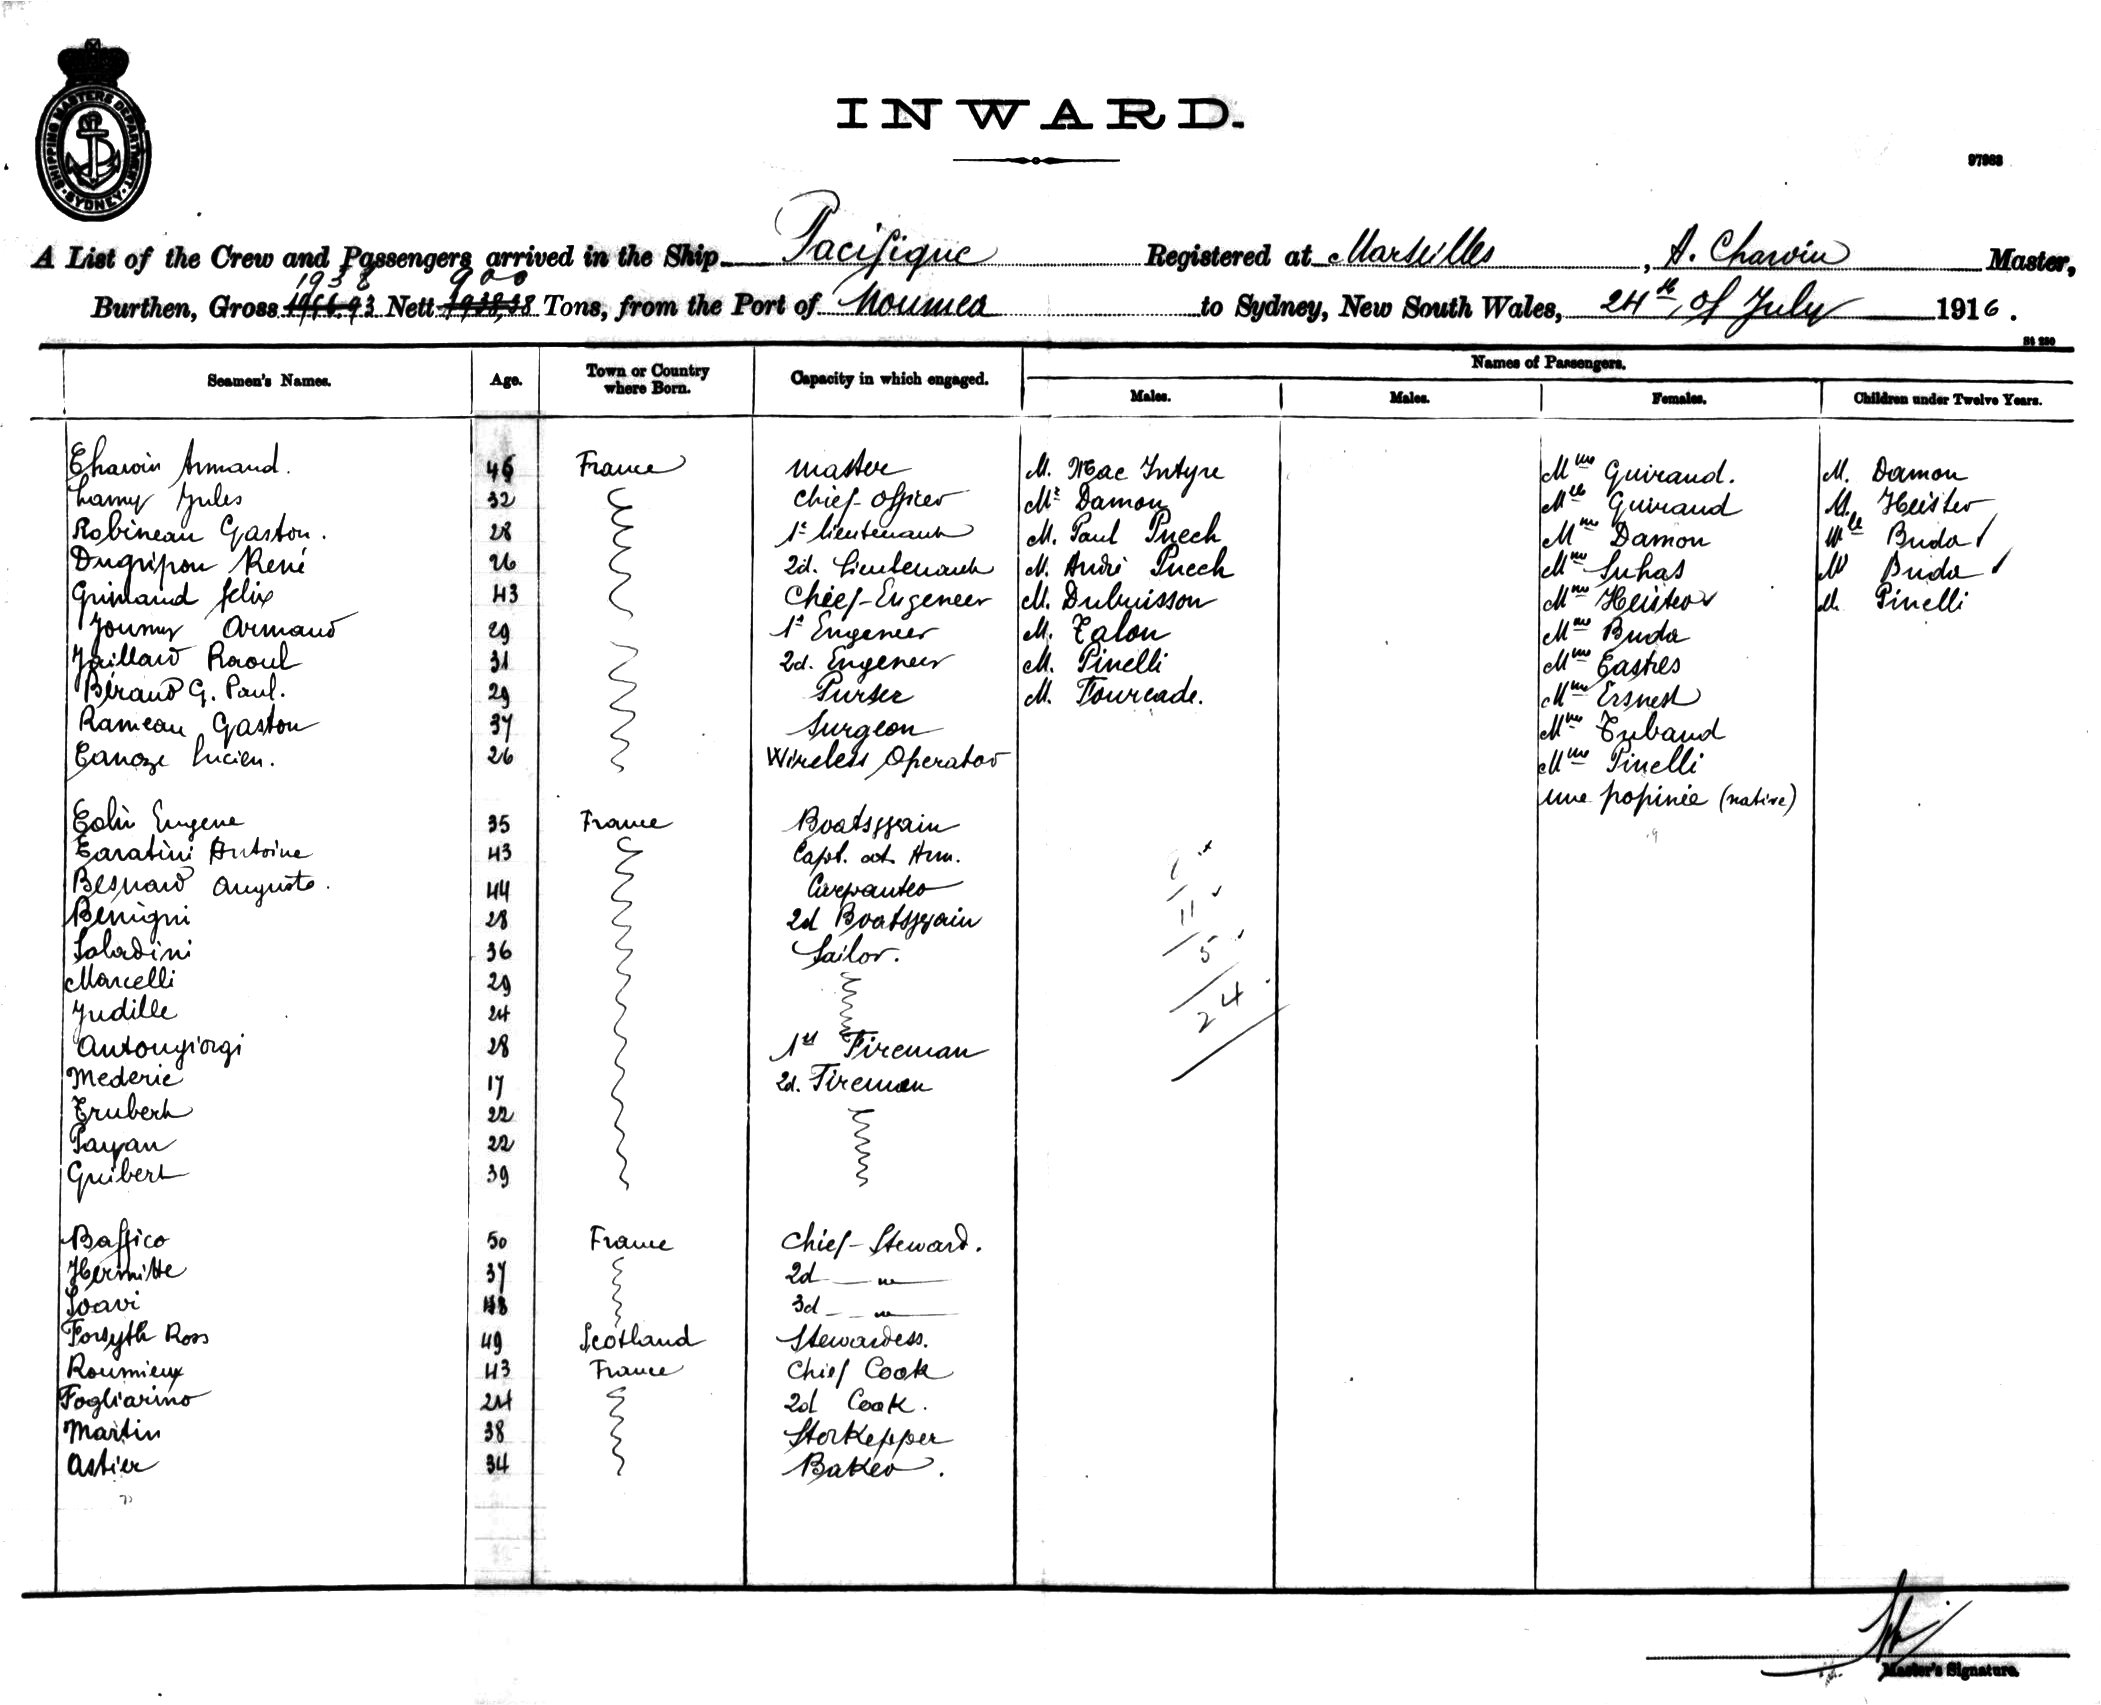 SHIPPING MASTERS DEPARTMENT SYDNEY
INWARD.
97963
A List of the Crew and Passengers arrived in the Ship Pacifique Registered at Marseilles, A. Charvin Master,
1938 900
Burthen, Gross 1966.93 Nett 1938,38 Tons, from the Port of Noumea to Sydney, New South Wales, 24th of July 1916.
St 230
Seamen's Names. Age. Town or Country where Born. Capacity in which engaged. Names of Passengers.
Males. Males. Females. Children under Twelve Years.
Charvin Armand. 46 France master M. Mac Intyre Mme Guiraud. M. Damon
Lamy Jules 32 Chief-Officer Mr Damon Mlle Guiraud M. Heister
Robineau Gaston. 28 1st lieutenant M. Paul Puech Mme Damon Mlle Buda
Dugripon René 26 2d. Lieutenant M. André Puech Mme Suhas M Buda
Grimaud felix 43 Chief-Engeneer M. Dubuisson Mme Heister M. Pinelli
Joumy Armand 29 1st Engeneer M. Talon Mme Buda
Jaillard Raoul 31 2d. Engeneer M. Pinelli Mme Castres
Béraud G. Paul. 29 Purser M. Fourcade. Mme Ersnest
Rameau Gaston 37 Surgeon Mme Tubaud
Canoze Lucien. 26 Wireless Operator Mme Pinelli
une popinée (native)
Colin Eugene 35 France Boatsgain
Caratini Antoine 43 Capt. at Arm.
Besnard Auguste. 44 Carpanter
Benigni 28 2d Boatsgain
Saladini 36 Sailor.
Marcelli 29
Judille 24
Antongiorgi 28 1st Fireman
Mederic 17 2d. Fireman
Trubert 22
Payan 22
Guibert 39
11
5
24
Baffico 50 France Chief-Steward.
Hermitte 37 2d — " —
Soavi 48 3d — " —
Forsyth Ross 49 Scotland Stewardess.
Roumieux 43 France Chief Cook
Fogliarino 24 2d Cook.
Martin 38 Storkepper
Astier 34 Baker.
Master's Signature.